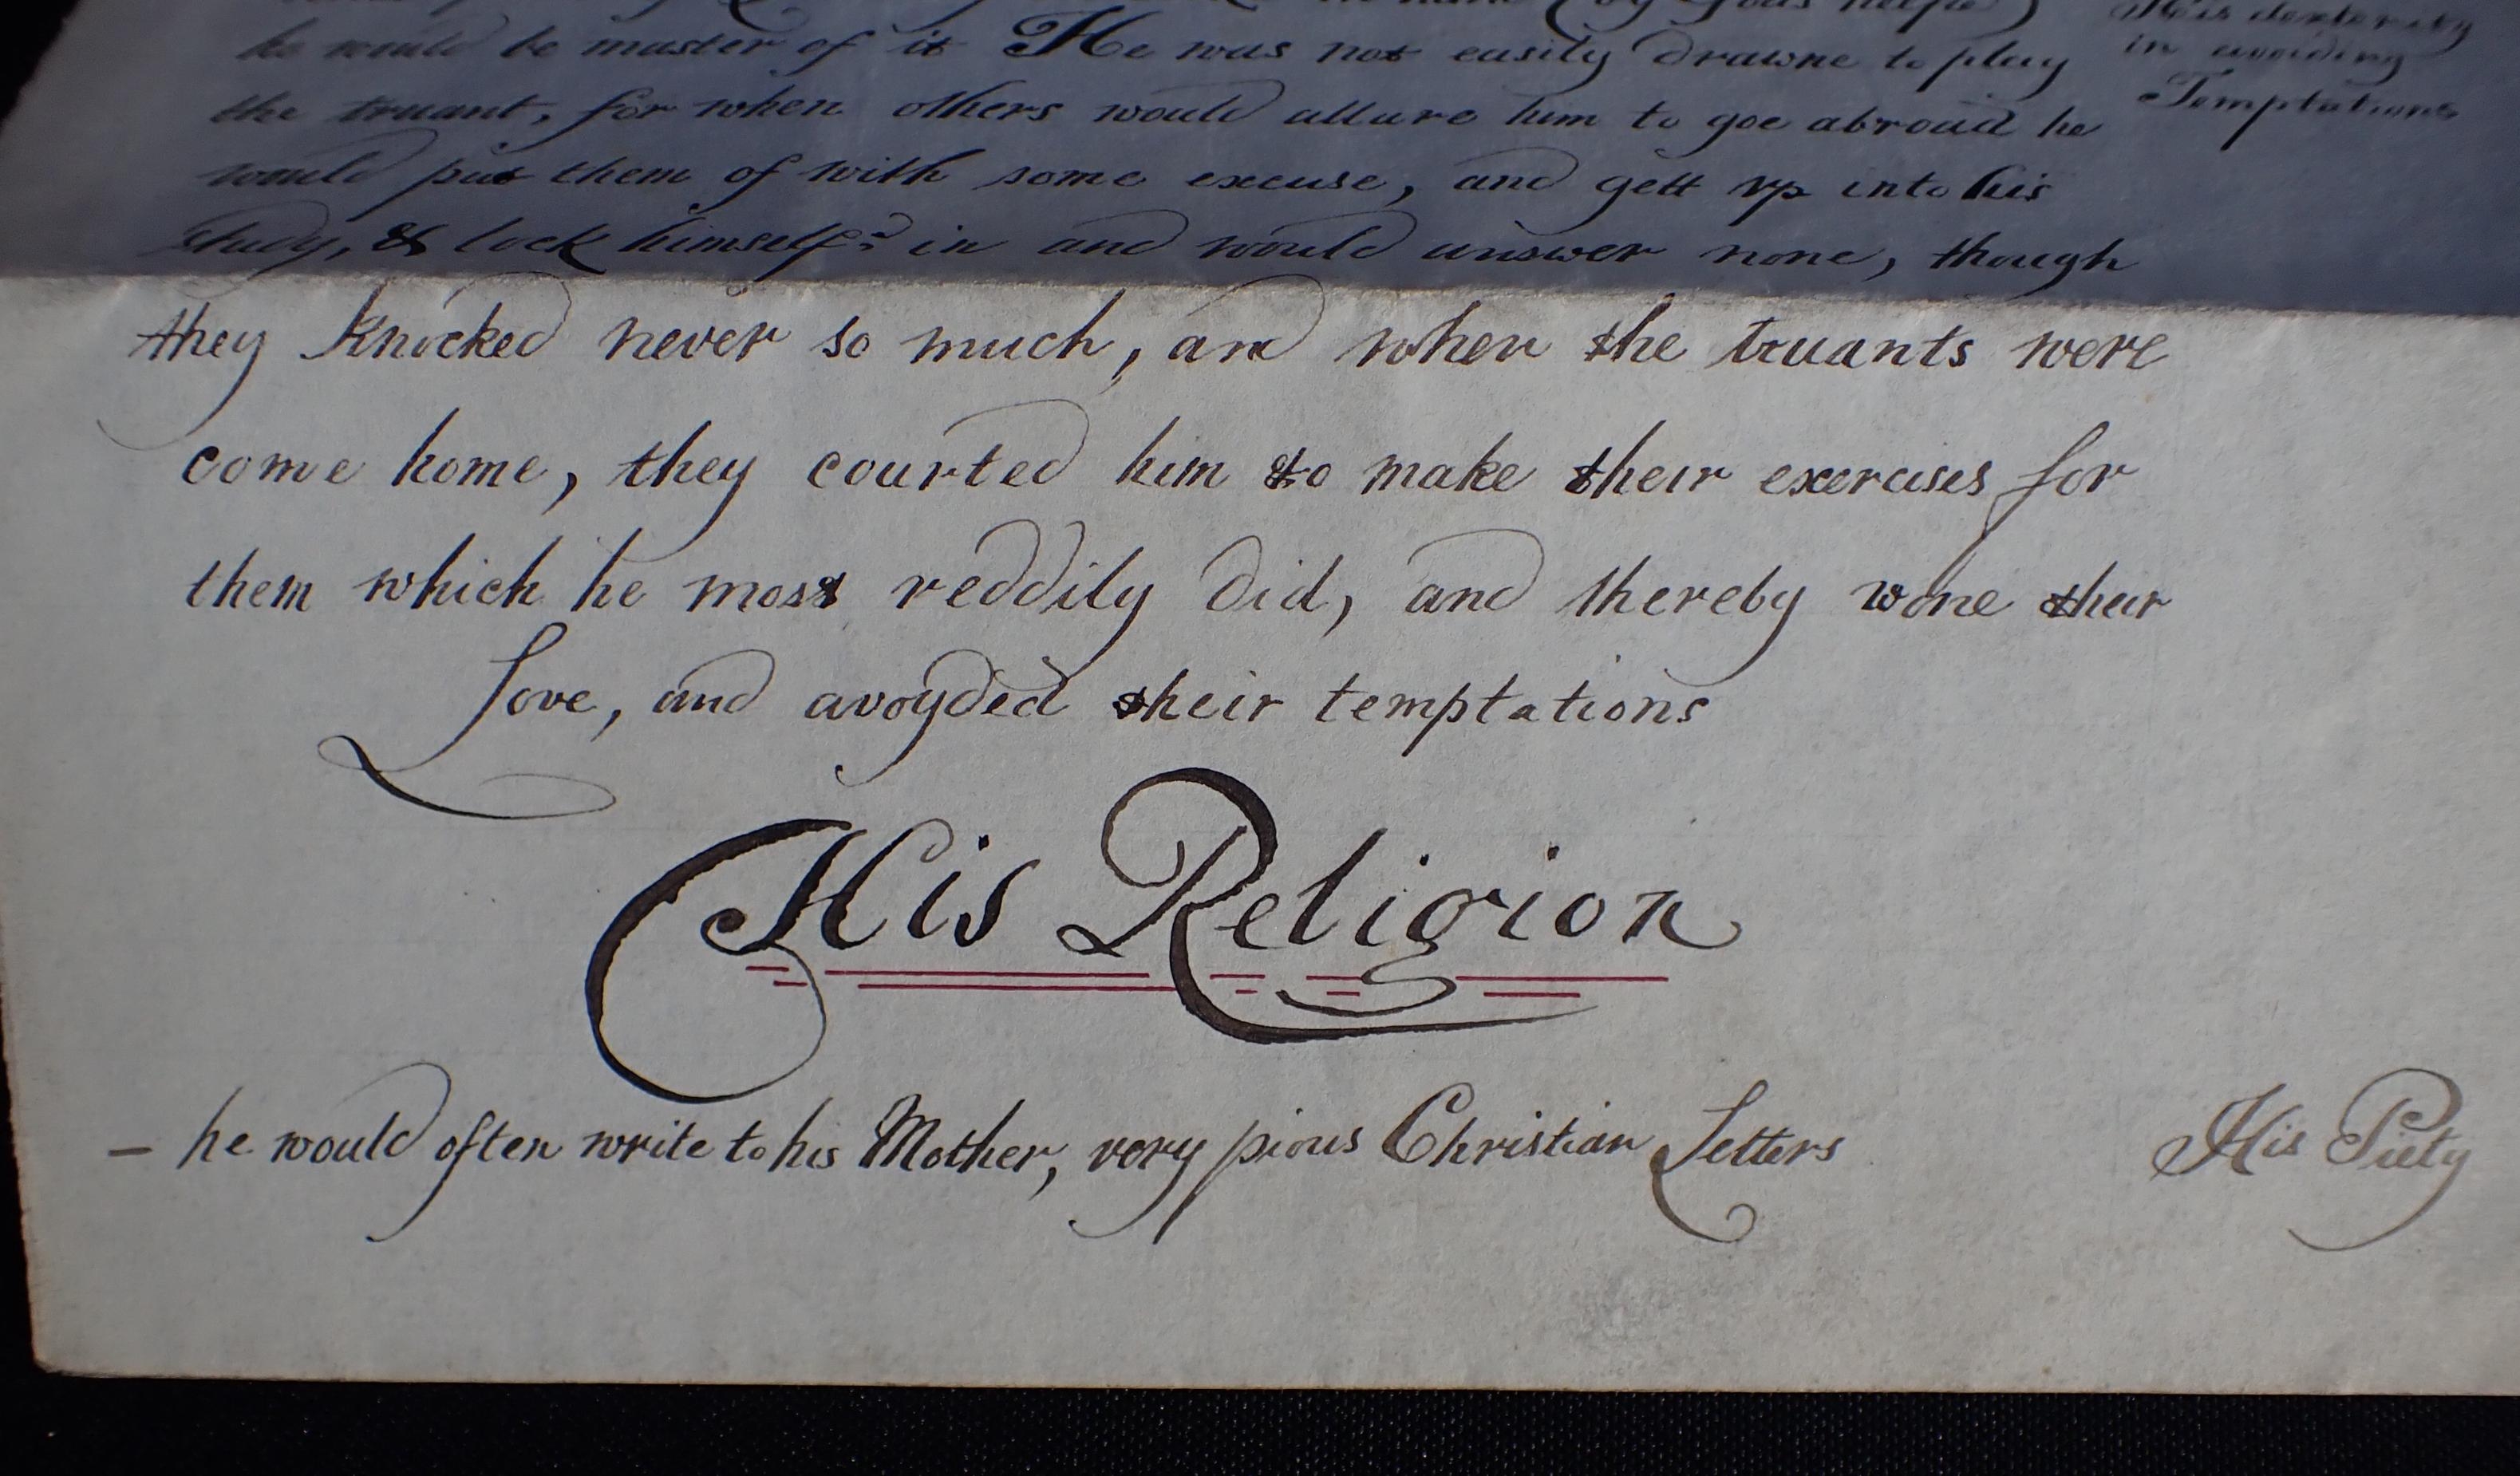 (by Gods helpe)
he would be master of it He was not easily drawne to play
His dexterity
in avoiding
Temptations
the truant, for when others would allure him to goe abroad he
would put them of with some excuse, and gett vp into his
study, & lock himselfe in and would answer none, though
they knocked never so much, and when the truants were
come home, they courted him to make their exercises for
them which he most reddily did, and thereby wone their
love, and avoyded their temptations
His Religion
– he would often write to his Mother, very pious Christian Letters
His Piety